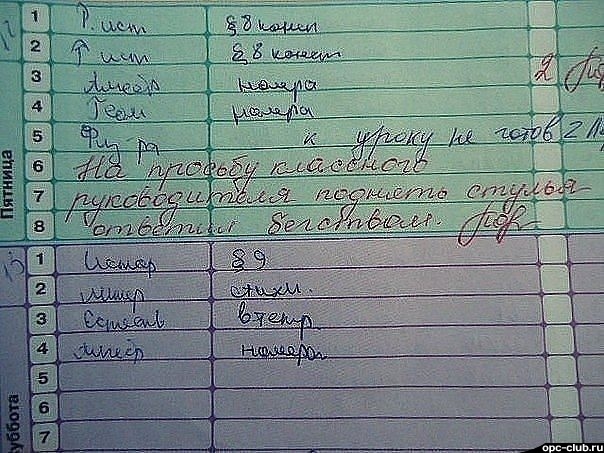 12
Пятница
1 Р. ист §8 конец
2 Р ист §8 конспт
3 Алгебр номера 2
4 Геом номера
5 Физ ра к уроку не готов 2
6 На просьбу классного
7 руководителя поднять стулья
8 ответил бегством.
13
уббота
1 Истор §9
2 Литер стихи.
3 Естеств в тетр
4 Алгебр номера
5
6
7
opc-club.ru